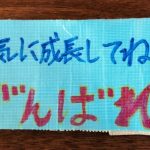 気に成長してね
がんばれ